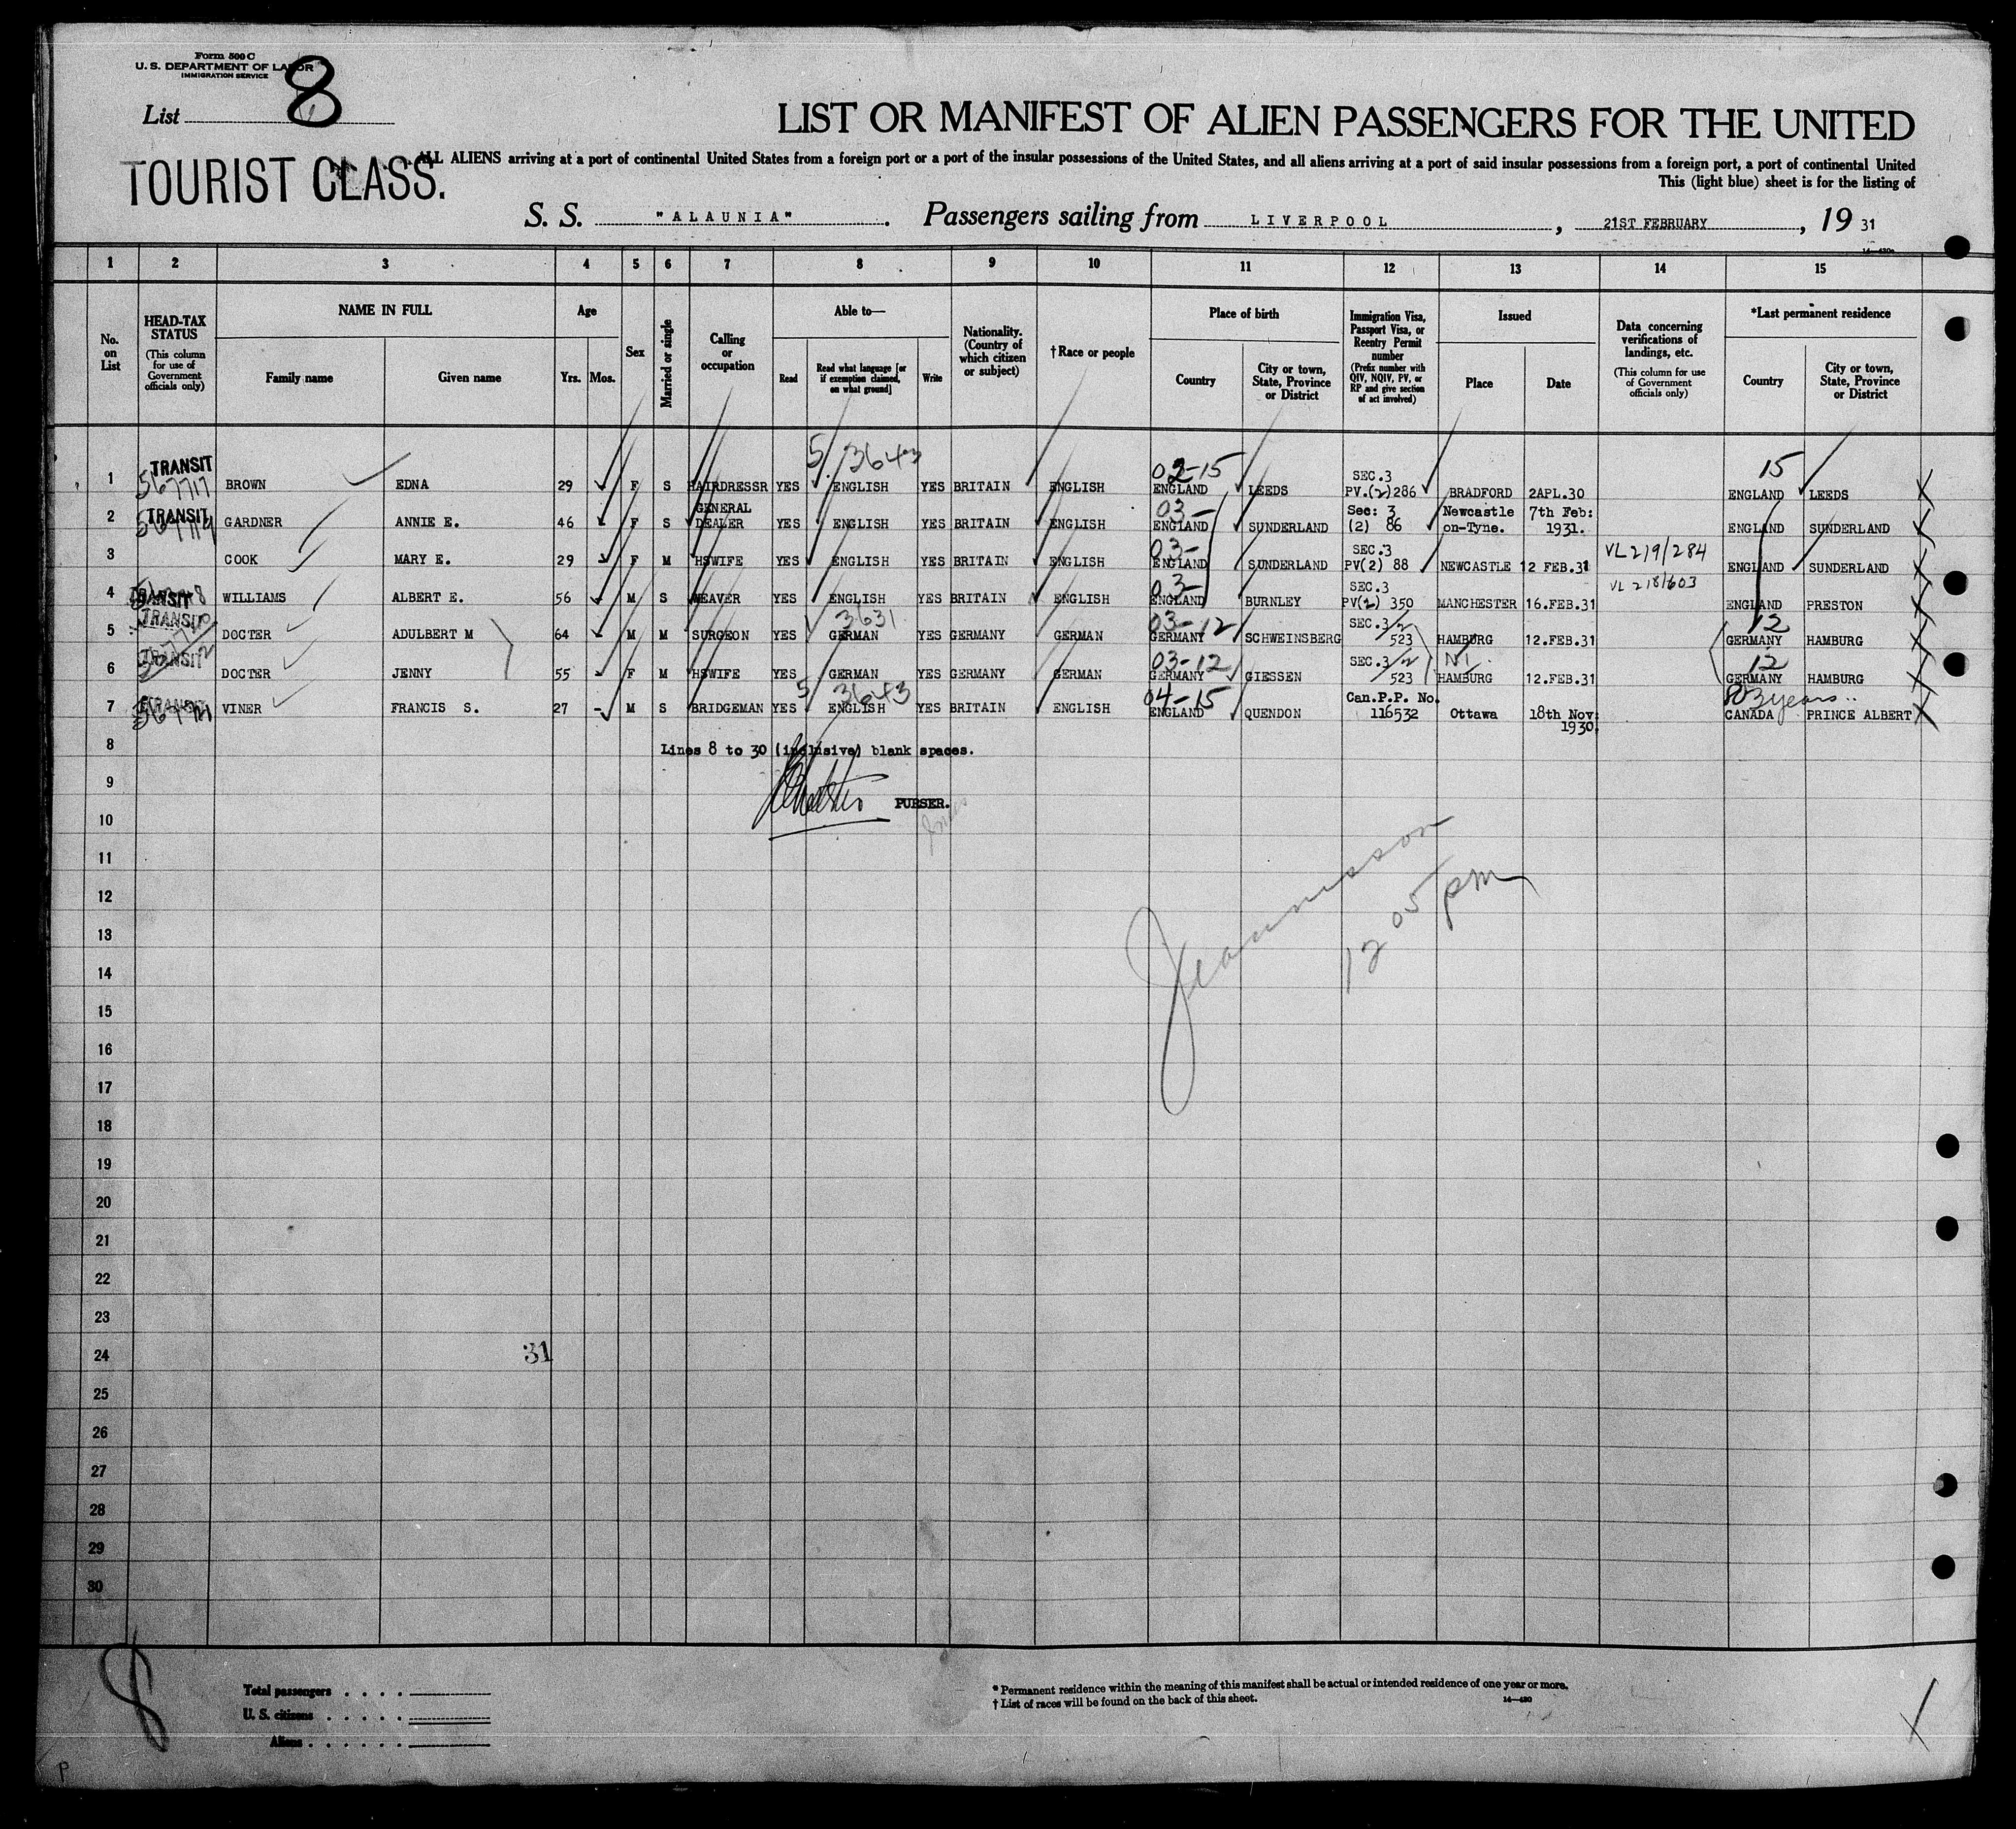 Form 500 C
U. S. DEPARTMENT OF LABOR
IMMIGRATION SERVICE
List 8
LIST OR MANIFEST OF ALIEN PASSENGERS FOR THE UNITED
TOURIST CLASS.
ALL ALIENS arriving at a port of continental United States from a foreign port or a port of the insular possessions of the United States, and all aliens arriving at a port of said insular possessions from a foreign port, a port of continental United
This (light blue) sheet is for the listing of
S. S. "ALAUNIA". Passengers sailing from LIVERPOOL, 21ST FEBRUARY, 19 31
1 2 3 4 5 6 7 8 9 10 11 12 13 14 15
No. on List
HEAD-TAX STATUS (This column for use of Government officials only)
NAME IN FULL
Family name
Given name
Age
Yrs. Mos.
Sex
Married or single
Calling or occupation
Able to—
Read
Read what language [or if exemption claimed, on what ground]
Write
Nationality. (Country of which citizen or subject)
†Race or people
Place of birth
Country
City or town, State, Province or District
Immigration Visa, Passport Visa, or Reentry Permit number (Prefix number with QIV, NQIV, PV, or RP and give section of act involved)
Issued
Place
Date
Data concerning verifications of landings, etc. (This column for use of Government officials only)
*Last permanent residence
Country
City or town, State, Province or District
1 TRANSIT 567717 BROWN EDNA 29 F S HAIRDRESSR YES 5/3643 ENGLISH YES BRITAIN ENGLISH 02-15 ENGLAND LEEDS SEC.3 PV.(2)286 BRADFORD 2APL.30 15 ENGLAND LEEDS
2 TRANSIT GARDNER ANNIE E. 46 F S GENERAL DEALER YES ENGLISH YES BRITAIN ENGLISH 03- ENGLAND SUNDERLAND Sec: 3 (2) 86 Newcastle on-Tyne. 7th Feb: 1931. ENGLAND SUNDERLAND
3 COOK MARY E. 29 F M HSWIFE YES ENGLISH YES BRITAIN ENGLISH 03- ENGLAND SUNDERLAND SEC.3 PV(2) 88 NEWCASTLE 12 FEB.31 VL 219/284 ENGLAND SUNDERLAND
4 TRANSIT WILLIAMS ALBERT E. 56 M S WEAVER YES ENGLISH YES BRITAIN ENGLISH 03- ENGLAND BURNLEY SEC.3 PV(2) 350 MANCHESTER 16.FEB.31 VL 218/603 ENGLAND PRESTON
5 TRANSIT DOCTER ADULBERT M 64 M M SURGEON YES 3631 GERMAN YES GERMANY GERMAN 03-12 GERMANY SCHWEINSBERG SEC.3/2 523 HAMBURG 12.FEB.31 12 GERMANY HAMBURG
6 TRANSIT DOCTER JENNY 55 F M HSWIFE YES GERMAN YES GERMANY GERMAN 03-12 GERMANY GIESSEN SEC.3/2 523 HAMBURG 12.FEB.31 12 GERMANY HAMBURG
7 TRANSIT VINER FRANCIS S. 27 - M S BRIDGEMAN YES 5/3643 ENGLISH YES BRITAIN ENGLISH 04-15 ENGLAND QUENDON Can.P.P. No. 116532 Ottawa 18th Nov: 1930. 3 years CANADA PRINCE ALBERT
8 Lines 8 to 30 (inclusive) blank spaces.
9
PURSER.
10
11
12
12 05 pm
13
14
15
16
17
18
19
20
21
22
23
24 31
25
26
27
28
29
30
8
Total passengers
U. S. citizens
Aliens
* Permanent residence within the meaning of this manifest shall be actual or intended residence of one year or more.
† List of races will be found on the back of this sheet.
14—430
P